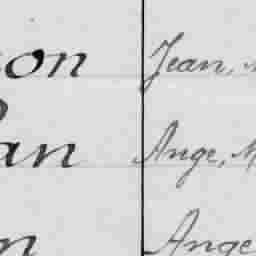 on Jean,
an Ange, M
n Ange